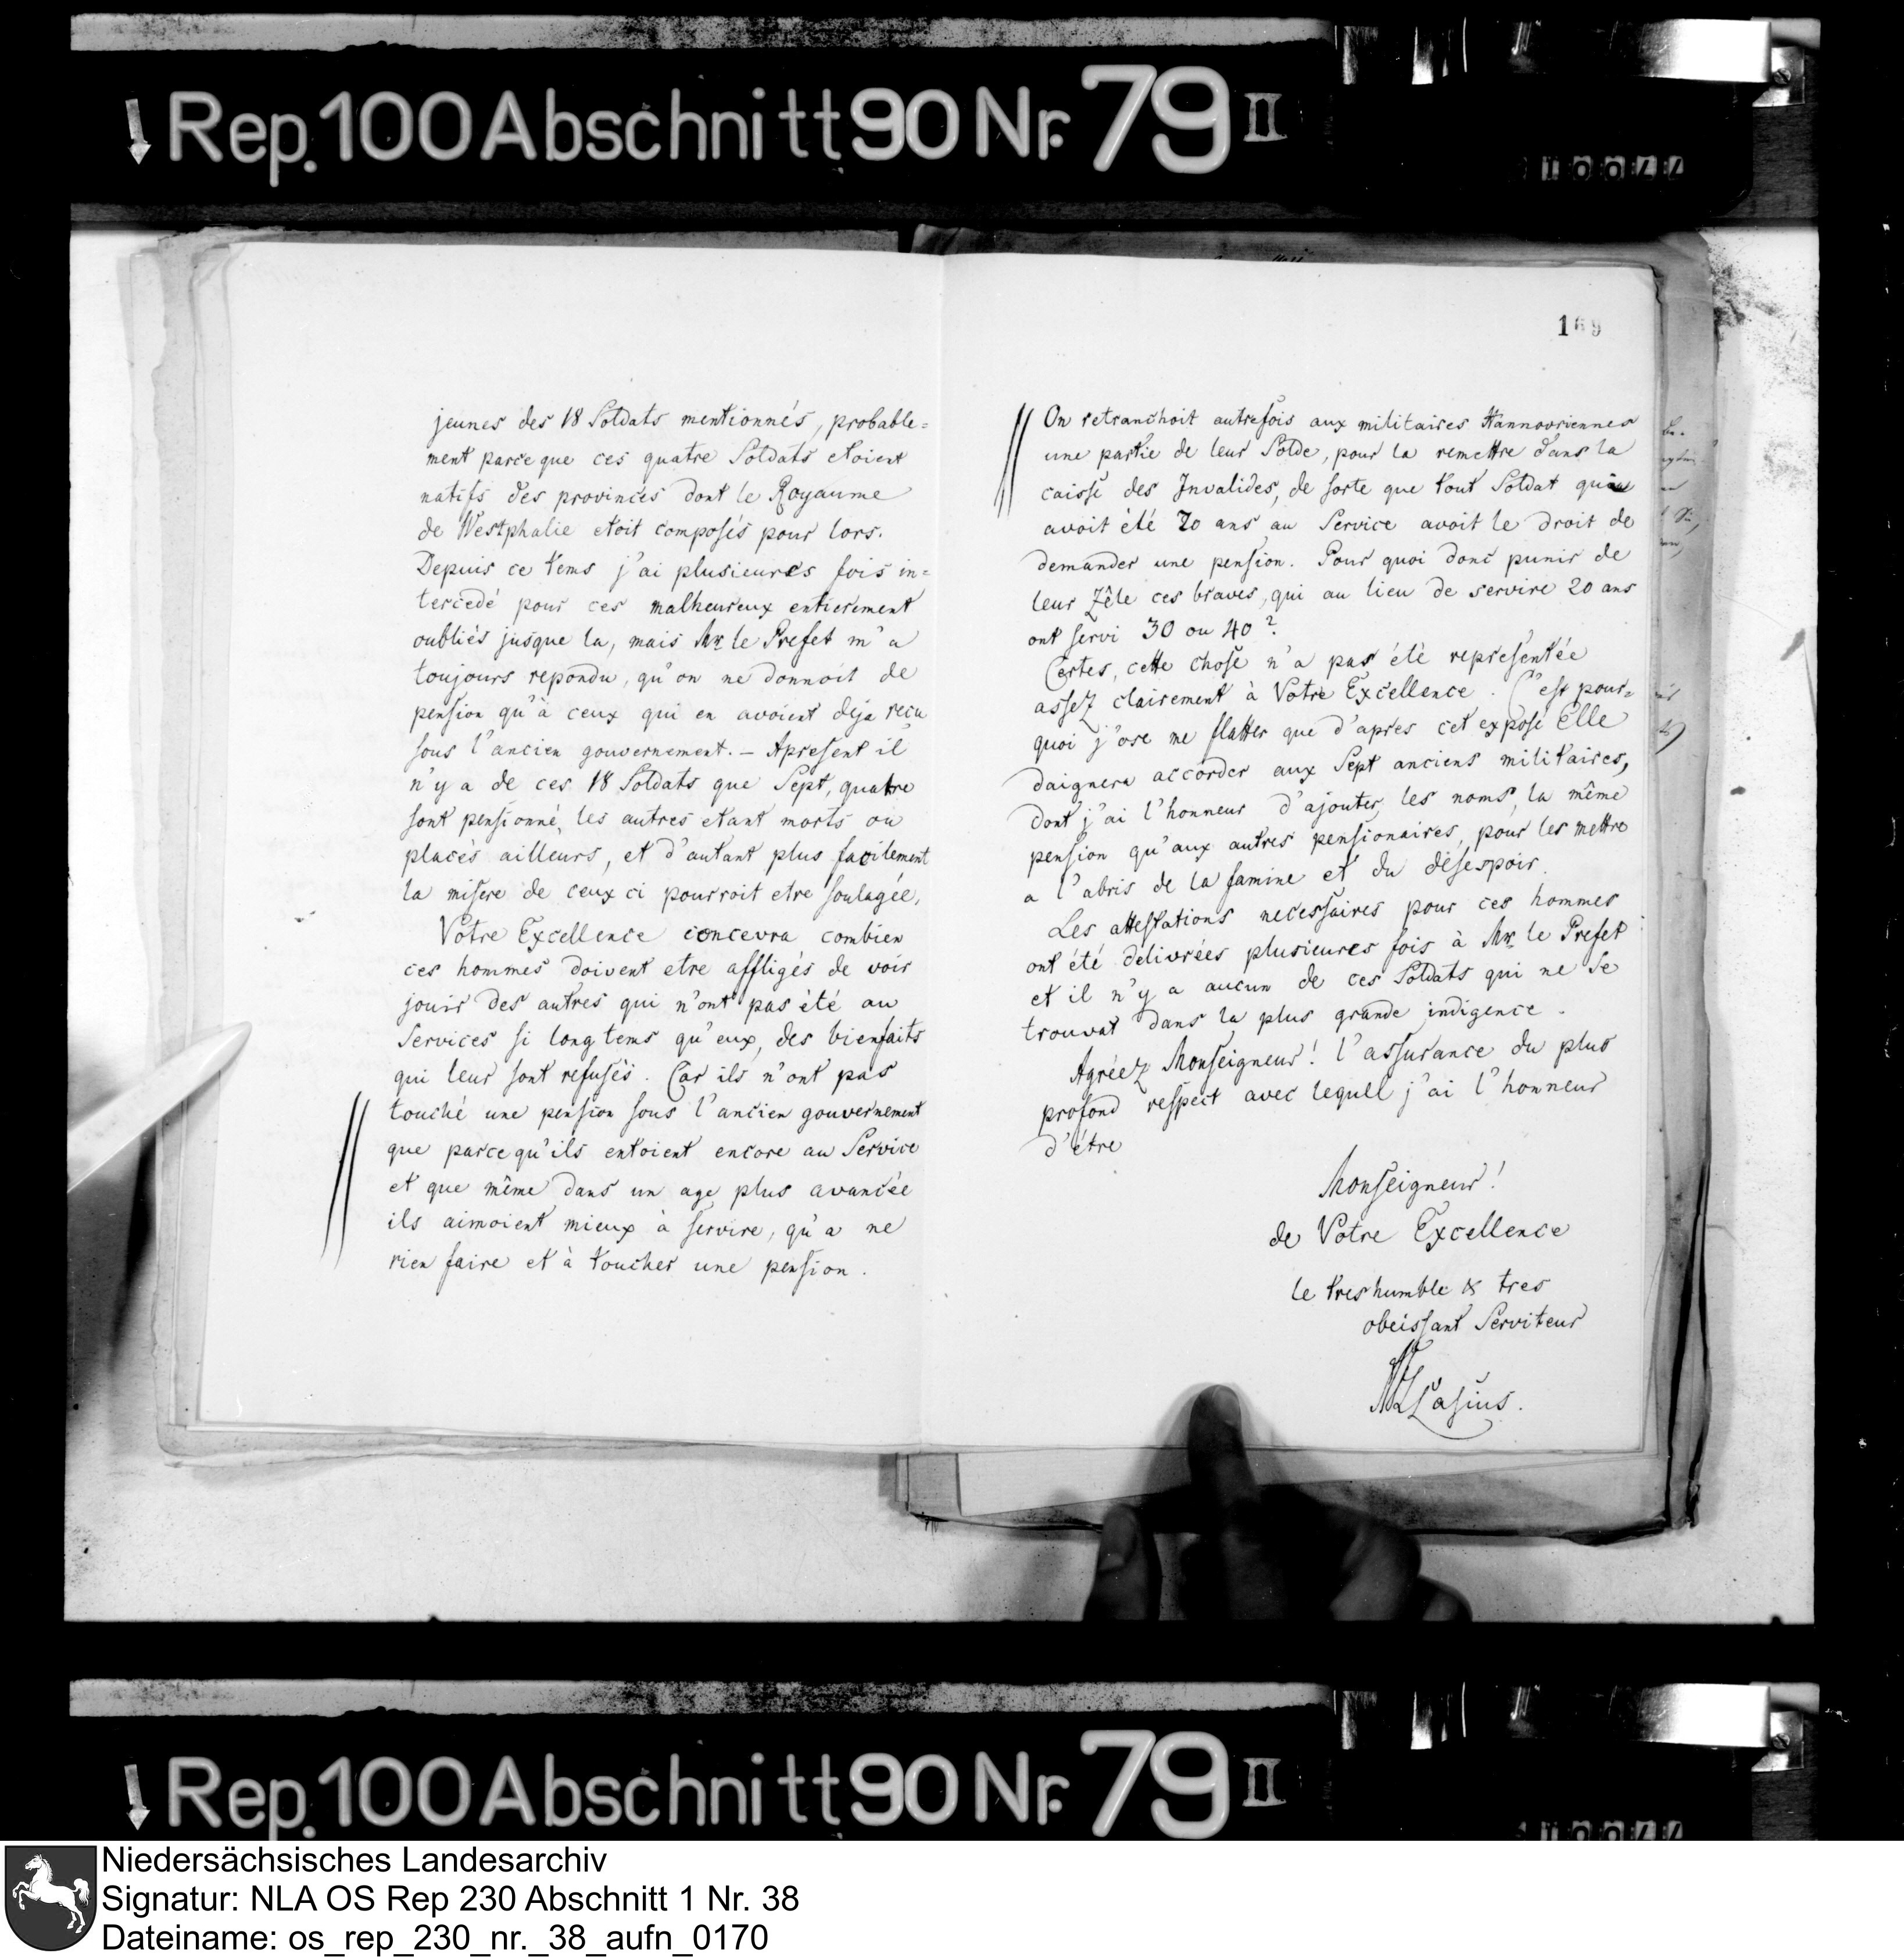 Rep. 100 Abschnitt 90 Nr. 79 II
10044
jeunes des 18 Soldats mentionnés, probable=
ment parce que ces quatre Soldats etoient
natifs des provinces dont le Royaume
de Westphalie etoit composés pour lors.
Depuis ce tems j'ai plusieures fois in=
tercedé pour ces malheureux entierement
oubliés jusque la, mais Mr. le Prefet m'a
toujours repondu, qu'on ne donnoit de
pension qu'à ceux qui en avoient deja reçu
sous l'ancien gouvernement. – Apresent il
n'y a de ces 18 Soldats que Sept, quatre
sont pensionné, les autres etant morts ou
placés ailleurs, et d'autant plus facilement
la misere de ceux ci pourroit etre soulagée.
Votre Excellence concevra combien
ces hommes doivent etre affligés de voir
jouir des autres qui n'ont pas été au
Services si long tems qu'eux, des bienfaits
qui leur sont refusés. Car ils n'ont pas
touché une pension sous l'ancien gouvernement
que parce qu'ils entoient encore au Service
et que même dans un age plus avancée
ils aimoient mieux à servire, qu'a ne
rien faire et à toucher une pension.
169
On retranchoit autrefois aux militaires Hannovriennes
une partie de leur Solde, pour la remettre dans la
caisse des Invalides, de sorte que tout Soldat qui
avoit été 20 ans au Service avoit le droit de
demander une pension. Pour quoi donc punir de
leur Zêle ces braves, qui au lieu de servire 20 ans
ont servi 30 ou 40?
Certes, cette chose n'a pas été representée
assez clairement à Votre Excellence. C'est pour=
quoi j'ose me flatter que d'apres cet exposé Elle
daignera accorder aux Sept anciens militaires,
dont j'ai l'honneur d'ajouter, les noms, la même
pension qu'aux autres pensionaires, pour les mettre
a l'abris de la famine et du désespoir.
Les attestations necessaires pour ces hommes
ont été delivrées plusieures fois à Mr. le Prefet
et il n'y a aucun de ces Soldats qui ne se
trouvat dans la plus grande indigence.
Agréez Monseigneur! l'assurance du plus
profond respect avec lequell j'ai l'honneur
d'être
Monseigneur!
de Votre Excellence
le tres humble & tres
obeissant Serviteur
Lasius.
Rep. 100 Abschnitt 90 Nr. 79 II
10044
Niedersächsisches Landesarchiv
Signatur: NLA OS Rep 230 Abschnitt 1 Nr. 38
Dateiname: os_rep_230_nr._38_aufn_0170